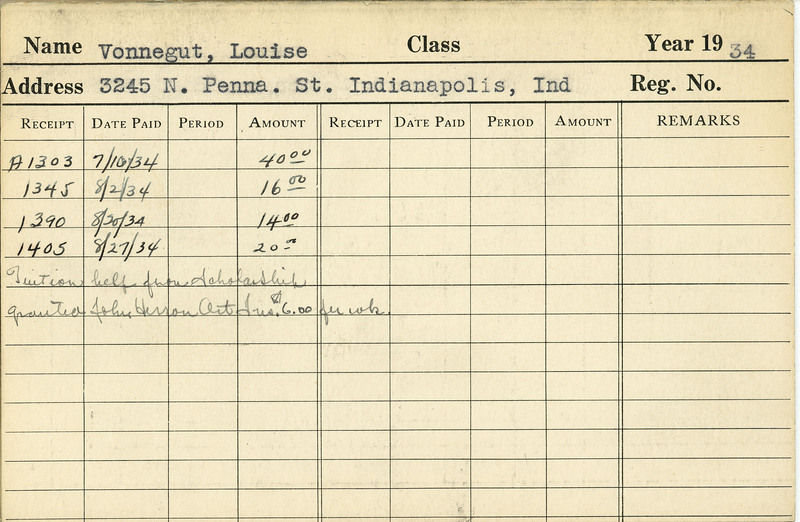 Name Vonnegut, Louise Class Year 19 34
Address 3245 N. Penna. St. Indianapolis, Ind Reg. No.
RECEIPT DATE PAID PERIOD AMOUNT RECEIPT DATE PAID PERIOD AMOUNT REMARKS
A1303 7/10/34 40 00
1345 8/2/34 16 00
1390 8/20/34 14 00
1405 8/27/34 20 00
Tuition help from Scholarship
granted John Herron Art Ins. $6.00 per wk.